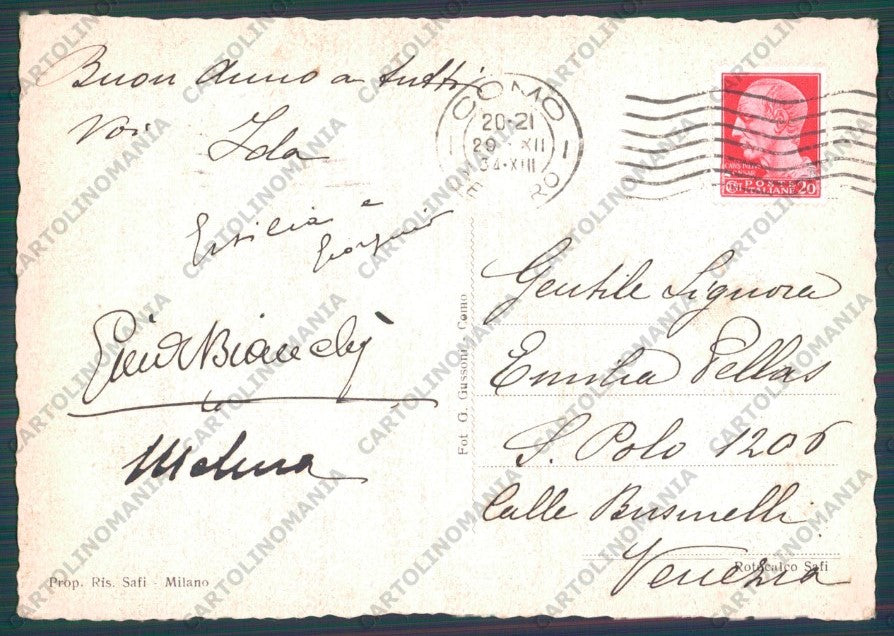 Buon Anno a tutti
Voi
Ida
Ersilia e
Giorgio
Bianchi
COMO
20-21
29 XII
34-XIII
POSTE
ITALIANE 20
Gentile Signora
Emilia Pellas
S. Polo 1206
Calle Businelli
Venezia
Fot. G. Gussoni - Como
Prop. Ris. Safi - Milano
Rotocalco Safi
CARTOLINOMANIA